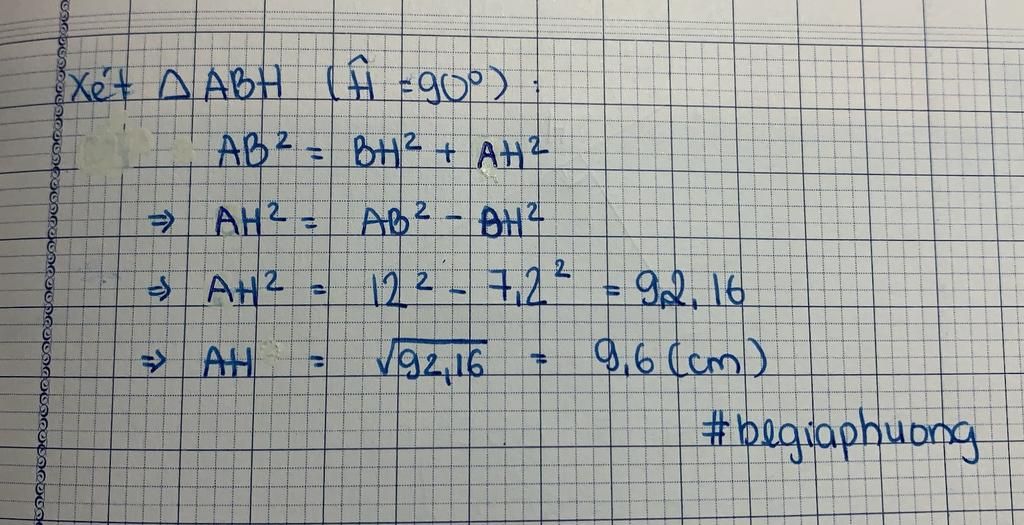 Xét △ ABH (Ĥ = 90°) :
AB² = BH² + AH²
⇒ AH² = AB² - BH²
⇒ AH² = 12² - 7,2² = 92,16
⇒ AH = √92,16 = 9,6 (cm)
#begiaphuong